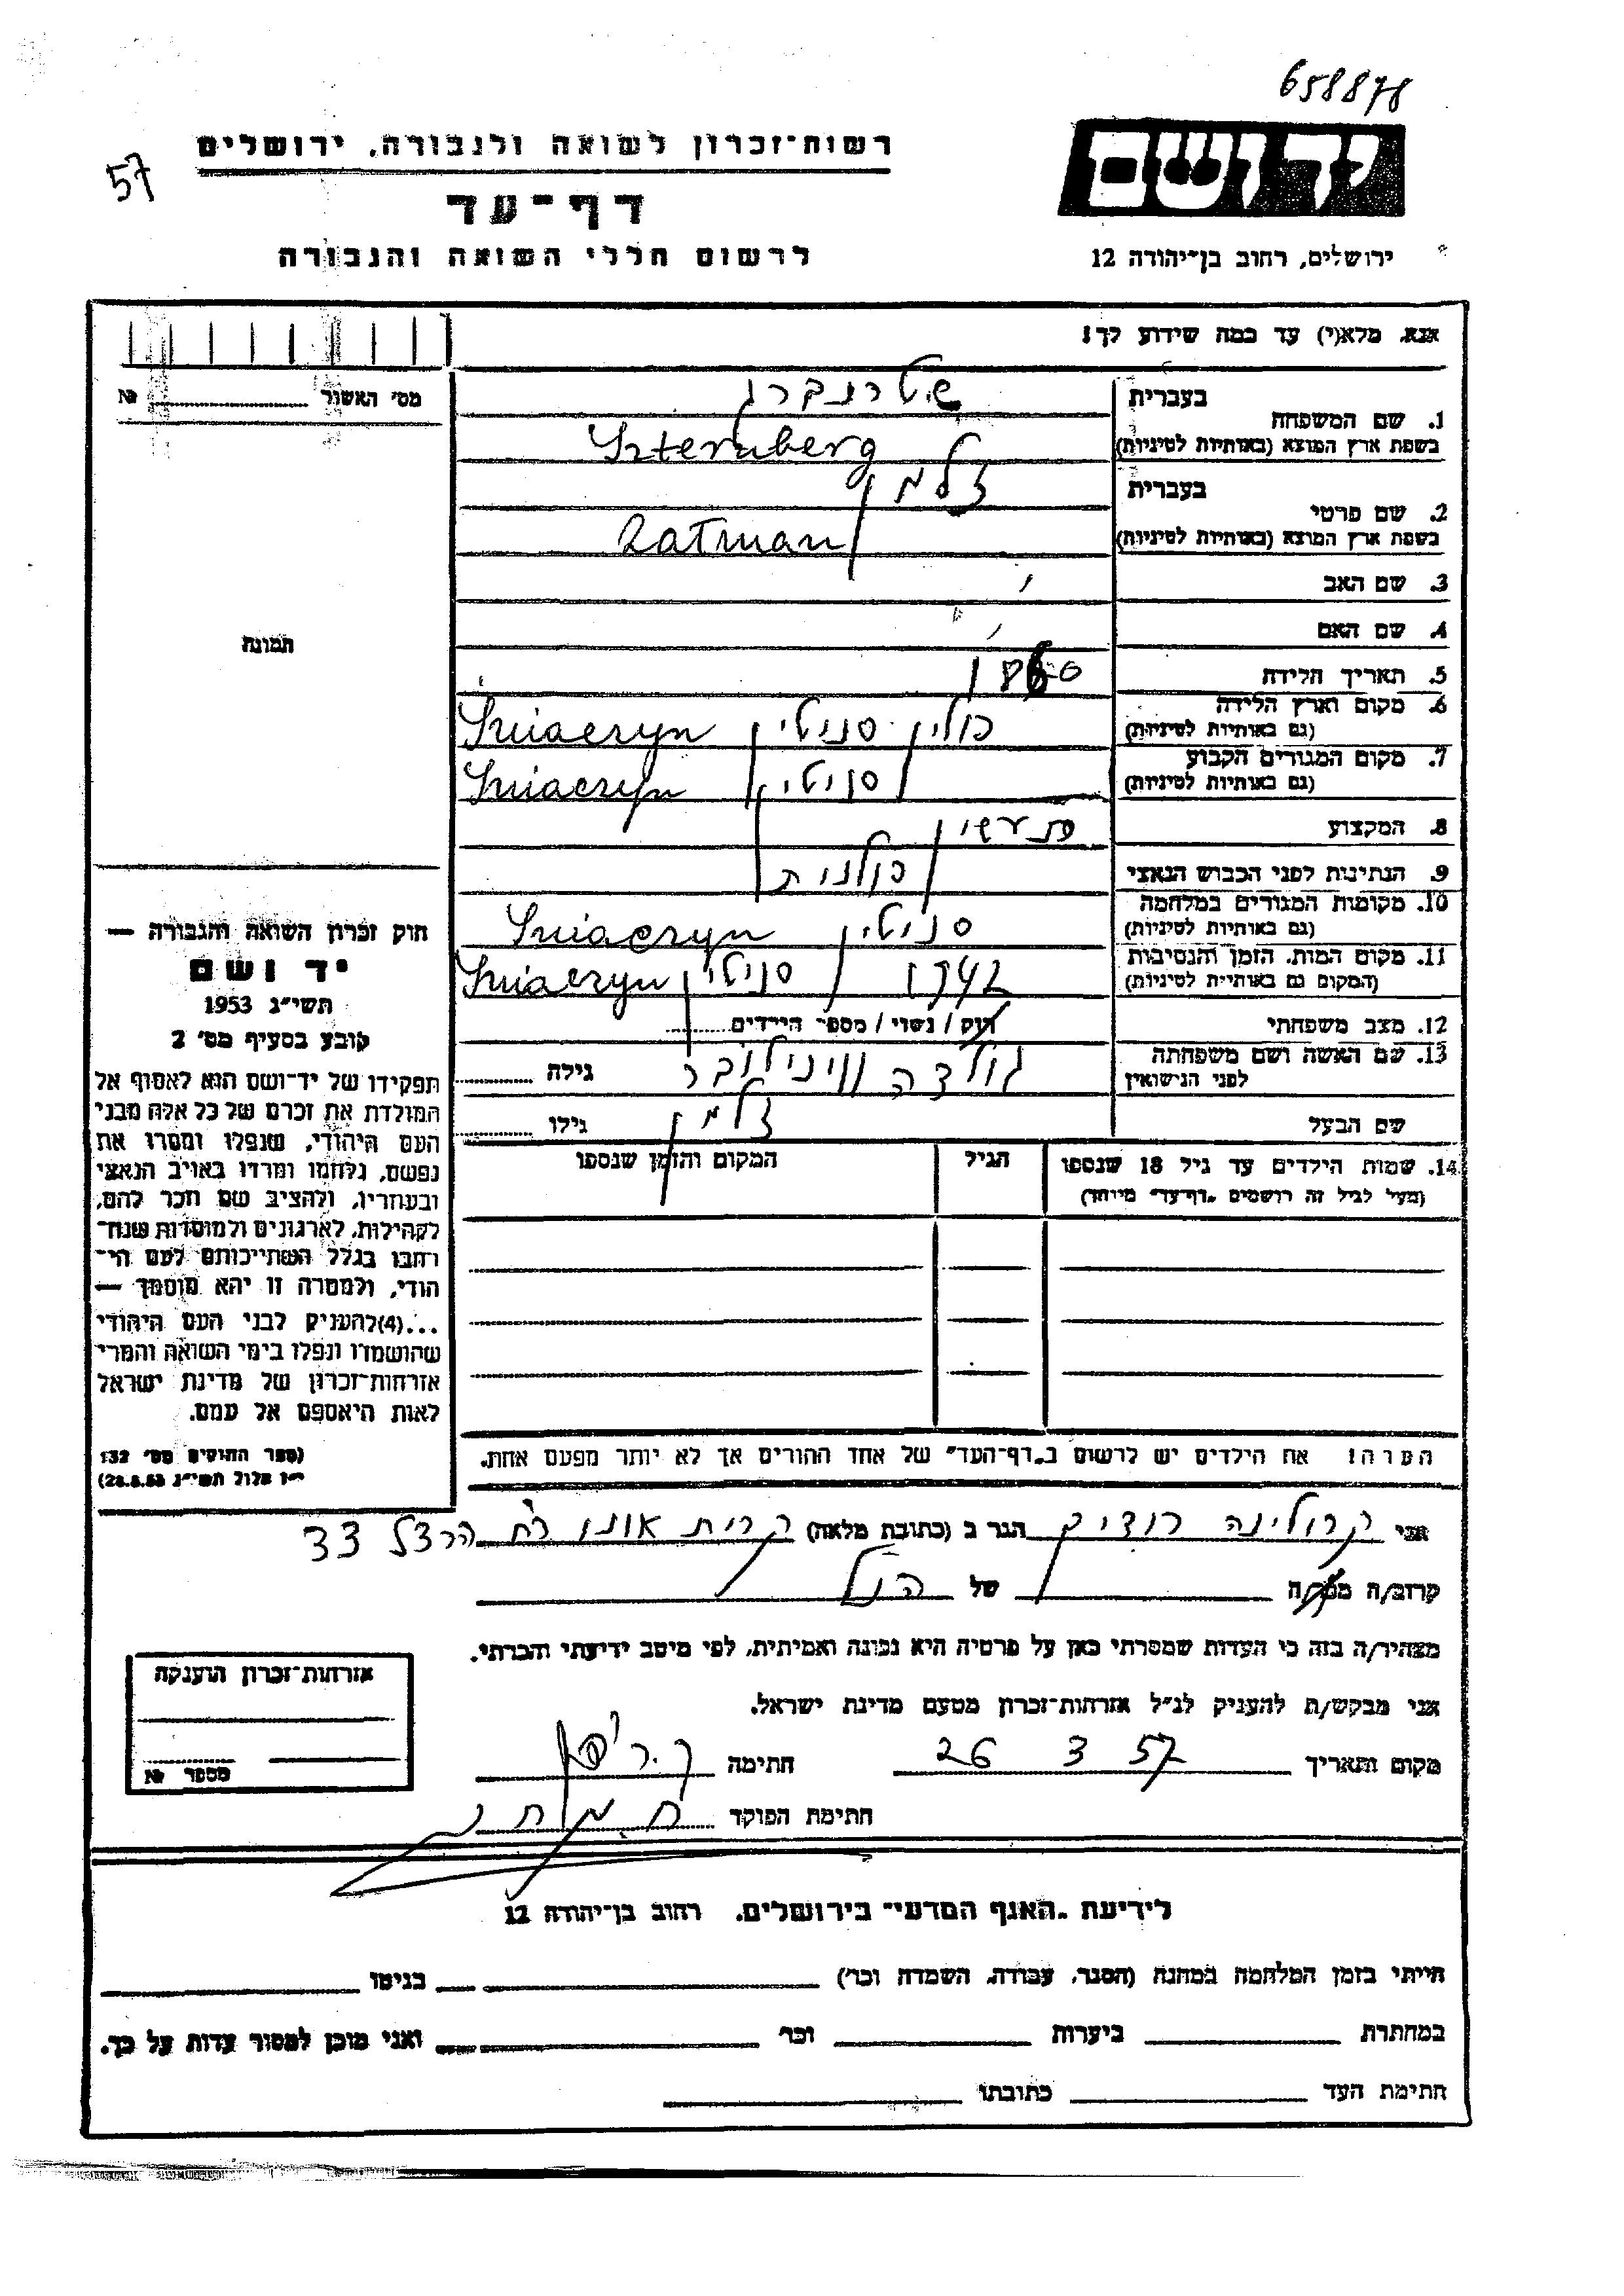 658878
57
רשות־זכרון לשואה ולגבורה, ירושלים
דף־עד
לרשום חללי השואה והגבורה
יד ושם
ירושלים, רחוב בן־יהודה 12
אנא, מלא(י) עד כמה שידוע לך!
מס' האשור № 
1. שם המשפחה בעברית שטרנברג
בשפת ארץ המוצא (באותיות לטיניות) Szternberg
2. שם פרטי בעברית זלמן
בשפת ארץ המוצא (באותיות לטיניות) Zalman
3. שם האב
4. שם האם
תמונה
5. תאריך הלידה
6. מקום וארץ הלידה פולין סניטין Sniaczyn
(גם באותיות לטיניות)
7. מקום המגורים הקבוע סניטין Sniaczyn
(גם באותיות לטיניות)
8. המקצוע
9. הנתינות לפני הכבוש הנאצי פולנית
10. מקומות המגורים במלחמה סניטין Sniaczyn
(גם באותיות לטיניות)
11. מקום המות, הזמן והנסיבות 1942 סניטין Sniaczyn
(המקום גם באותיות לטיניות)
12. מצב משפחתי רווק / נשוי / מספר הילדים
13. שם האשה ושם משפחתה גולדה גילה
לפני הנישואין
שם הבעל זלמן גילו
14. שמות הילדים עד גיל 18 שנספו הגיל המקום והזמן שנספו
(מעל לגיל זה רושמים „דף־עד” מיוחד)
חוק זכרון השואה והגבורה —
יד ושם
תשי״ג 1953
קובע בסעיף מס' 2
תפקידו של יד־ושם הוא לאסוף אל
המולדת את זכרם של כל אלה מבני
העם היהודי, שנפלו ומסרו את
נפשם, נלחמו ומרדו באויב הנאצי
ובעוזריו, ולהציב שם וזכר להם,
לקהילות, לארגונים ולמוסדות שנח־
רבו בגלל השתייכותם לעם הי־
הודי, ולמטרה זו יהא מוסמך —
...(4)להעניק לבני העם היהודי
שהושמדו ונפלו בימי השואה והמרי
אזרחות־זכרון של מדינת ישראל
לאות היאספם אל עמם.
(ספר החוקים מס' 132
י״ז אלול תשי״ג 28.8.53)
הערה! את הילדים יש לרשום ב„דף־העד” של אחד ההורים אך לא יותר מפעם אחת.
אני קרולינה הגר ב (כתובת מלאה) קרית אונו רח הרצל 33
קרוב/ה מכר/ה של הנ״ל
מצהיר/ה בזה כי העדות שמסרתי כאן על פרטיה היא נכונה ואמיתית, לפי מיטב ידיעתי והכרתי.
אני מבקש/ת להעניק לנ״ל אזרחות־זכרון מטעם מדינת ישראל.
מקום ותאריך 26 3 57 חתימה
חתימת הפוקד
אזרחות־זכרון הוענקה
מספר №
לידיעת „האגף המדעי” בירושלים, רחוב בן־יהודה 12
הייתי בזמן המלחמה במחנה (הסגר, עבודה, השמדה וכו') בגיטו
במחתרת ביערות וכו' ואני מוכן למסור עדות על כך.
חתימת העד כתובתו